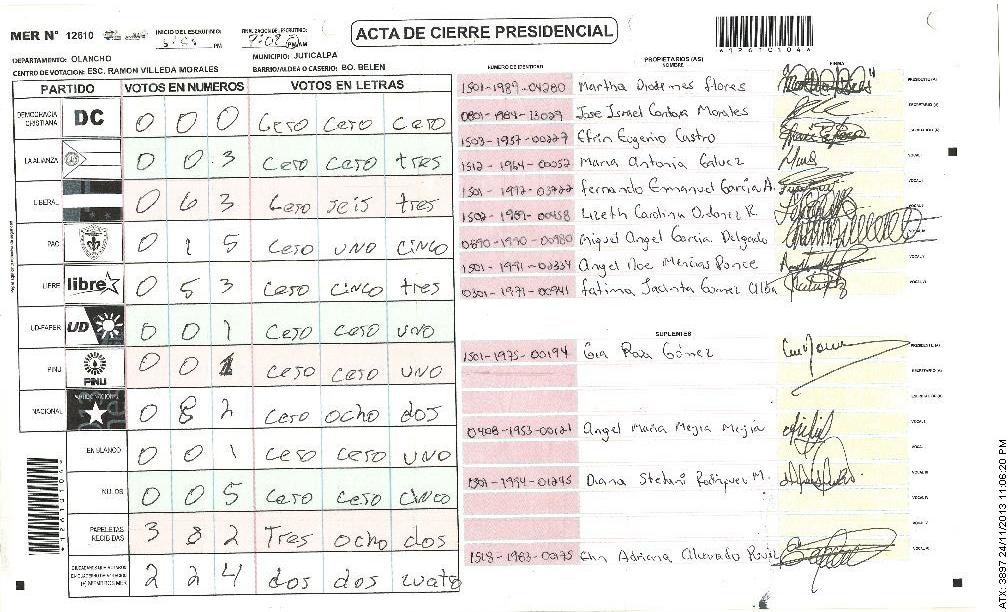 MER N° 12610
INICIO DEL ESCRUTINIO:
PM
FINALIZACION DE ESCRUTINIO:
PM/AM
ACTA DE CIERRE PRESIDENCIAL
*12610104*
DEPARTAMENTO: OLANCHO
MUNICIPIO: JUTICALPA
CENTRO DE VOTACION: ESC. RAMON VILLEDA MORALES
BARRIO/ALDEA O CASERIO: BO. BELEN
PARTIDO VOTOS EN NUMEROS VOTOS EN LETRAS
DEMOCRACIA CRISTIANA DC 0 0 0 Cero cero cero
LA ALIANZA 0 0 3 Cero cero tres
LIBERAL 0 6 3 Cero seis tres
PAC 0 1 5 Cero uno cinco
LIBRE libre 0 5 3 Cero cinco tres
UD-FAPER UD 0 0 1 Cero cero uno
PINU PINU 0 0 1 Cero cero uno
NACIONAL 0 8 2 Cero ocho dos
EN BLANCO 0 0 1 Cero cero uno
NULOS 0 0 5 Cero cero cinco
PAPELETAS RECIBIDAS 3 8 2 Tres ocho dos
2 2 4 dos dos cuatro
NUMERO DE IDENTIDAD
PROPIETARIOS (AS)
NOMBRE
FIRMA
1501-1989-04280 Martha Diodemes flores PRESIDENTE (A)
0801-1984-13029 Jose Ismel Contreras Morales SECRETARIO (A)
1503-1957-00227 Efrin Eugenio Castro
1512-1964-00052 Maria Antonia Galvez VOCAL I
1501-1992-03722 fernando Emmanuel Garcia A.
1502-1989-00458 Lizeth Carolina Ordoñez R.
0890-1990-00980 Miguel Angel Garcia Delgado
1501-1991-02334 Angel Noe Mencias Ponce
0301-1971-00941 fatima Jacinta Gomez Alba
SUPLENTES
1501-1975-00194 Rosa Gómez PRESIDENTE (A)
SECRETARIO (A)
0408-1953-00121 Angel Maria Mejia Mejia
1501-1994-01245 Diana Stefani Rodriguez M.
1518-1983-00175 Adriana Alvarado Ruiz
*12610104*
ATX: 3897 24/11/2013 11:06:20 PM